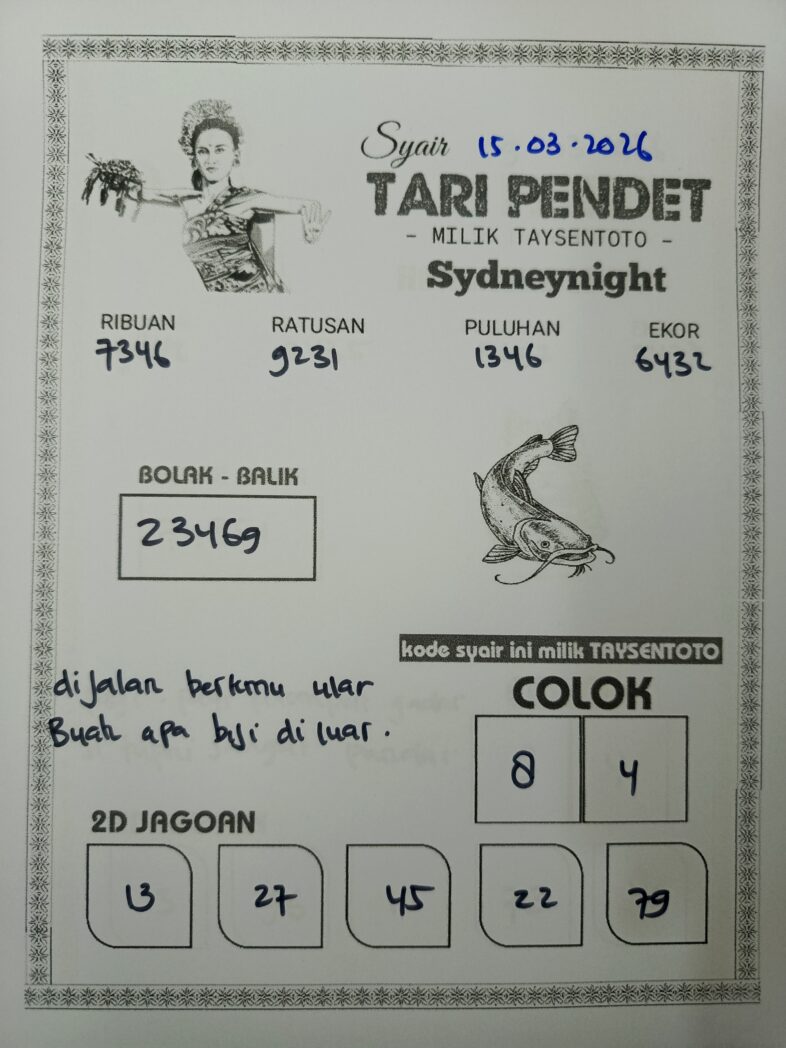 Syair 15.03.2026
TARI PENDET
- MILIK TAYSENTOTO -
Sydneynight
RIBUAN RATUSAN PULUHAN EKOR
7346 9231 1346 6432
BOLAK - BALIK
23469
kode syair ini milik TAYSENTOTO
dijalan berkmu ular
Buah apa biji di luar.
COLOK
8 4
2D JAGOAN
13 27 45 22 79